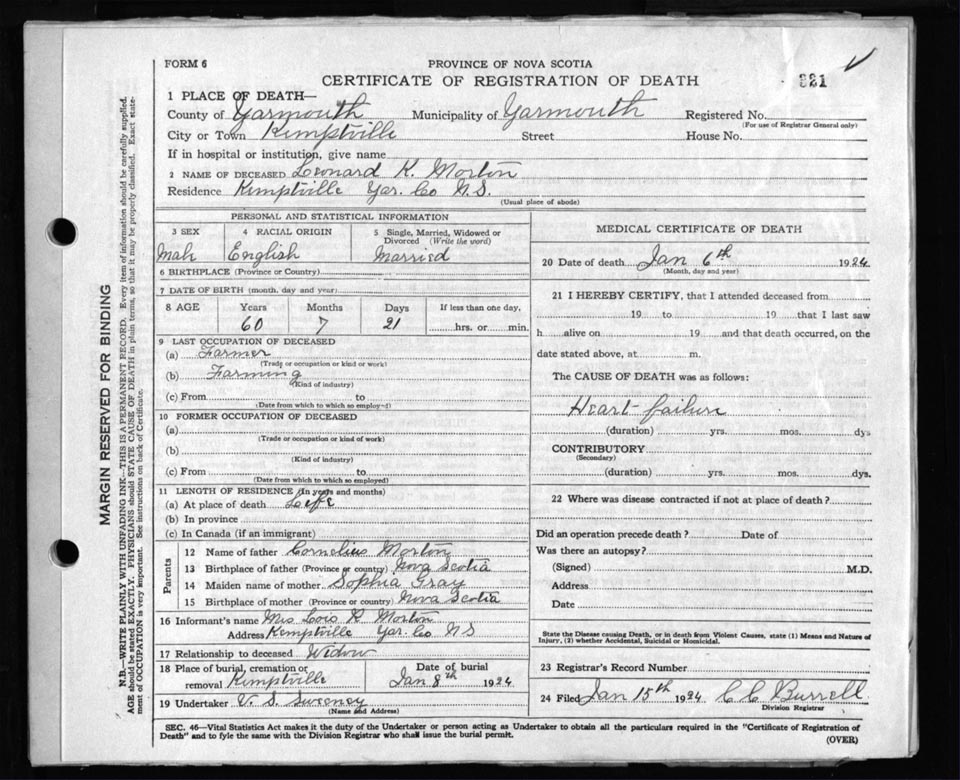 FORM 6
PROVINCE OF NOVA SCOTIA
CERTIFICATE OF REGISTRATION OF DEATH
321
1 PLACE OF DEATH—
County of Yarmouth Municipality of Yarmouth Registered No.
(For use of Registrar General only)
City or Town Kemptville Street House No.
If in hospital or institution, give name
2 NAME OF DECEASED Leonard K. Morton
Residence Kemptville Yar. Co N.S.
(Usual place of abode)
PERSONAL AND STATISTICAL INFORMATION
3 SEX 4 RACIAL ORIGIN 5 Single, Married, Widowed or Divorced (Write the word)
Male English Married
6 BIRTHPLACE (Province or Country)
7 DATE OF BIRTH (month, day and year)
8 AGE Years Months Days If less than one day,
60 7 21 hrs. or min.
9 LAST OCCUPATION OF DECEASED
(a) Farmer
(Trade or occupation or kind or work)
(b) Farming
(Kind of industry)
(c) From to
(Date from which to which so employed)
10 FORMER OCCUPATION OF DECEASED
(a)
(Trade or occupation or kind of work)
(b)
(Kind of industry)
(c) From to
(Date from which to which so employed)
11 LENGTH OF RESIDENCE (In years and months)
(a) At place of death Life
(b) In province
(c) In Canada (if an immigrant)
Parents
12 Name of father Cornelius Morton
13 Birthplace of father (Province or country) Nova Scotia
14 Maiden name of mother Sophia Gray
15 Birthplace of mother (Province or country) Nova Scotia
16 Informant's name Mrs Lois R Morton
Address Kemptville Yar. Co NS
17 Relationship to deceased Widow
18 Place of burial, cremation or removal Kemptville Date of burial Jan 8th 1924
19 Undertaker V. S. Sweeney
(Name and Address)
MEDICAL CERTIFICATE OF DEATH
20 Date of death Jan 6th 1924
(Month, day and year)
21 I HEREBY CERTIFY, that I attended deceased from
19 to 19 that I last saw
h alive on 19 and that death occurred, on the
date stated above, at m.
The CAUSE OF DEATH was as follows:
Heart failure
(duration) yrs. mos. dys
CONTRIBUTORY
(Secondary)
(duration) yrs. mos. dys.
22 Where was disease contracted if not at place of death?
Did an operation precede death? Date of
Was there an autopsy?
(Signed) M.D.
Address
Date
State the Disease causing Death, or in death from Violent Causes, state (1) Means and Nature of
Injury, (2) whether Accidental, Suicidal or Homicidal.
23 Registrar's Record Number
24 Filed Jan 15th 1924 C C Burrell
Division Registrar
SEC. 46—Vital Statistics Act makes it the duty of the Undertaker or person acting as Undertaker to obtain all the particulars required in the "Certificate of Registration of
Death" and to fyle the same with the Division Registrar who shall issue the burial permit.
(OVER)
MARGIN RESERVED FOR BINDING
N.B.—WRITE PLAINLY WITH UNFADING INK—THIS IS A PERMANENT RECORD. Every item of information should be carefully supplied.
AGE should be stated EXACTLY. PHYSICIANS should STATE CAUSE OF DEATH in plain terms, so that it may be properly classified. Exact state-
ment of OCCUPATION is very important. See instructions on back of Certificate.